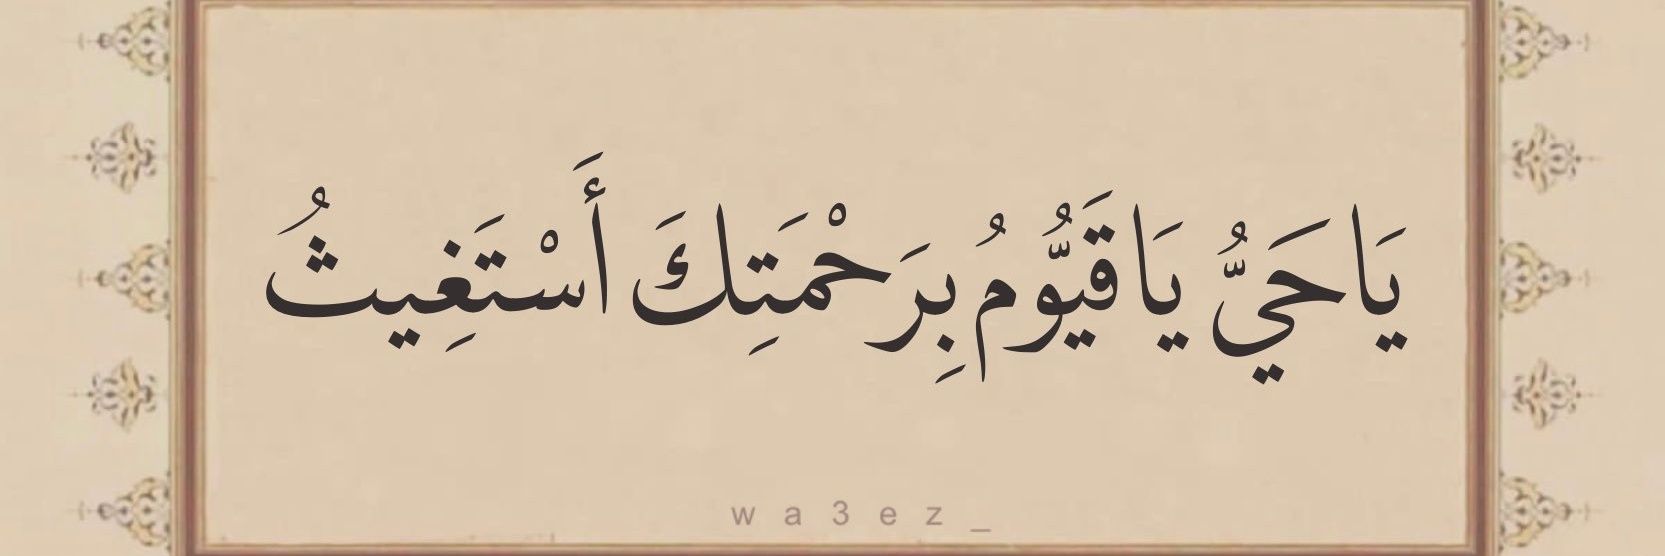 يَا حَيُّ يَا قَيُّومُ بِرَحْمَتِكَ أَسْتَغِيثُ
wa3ez_